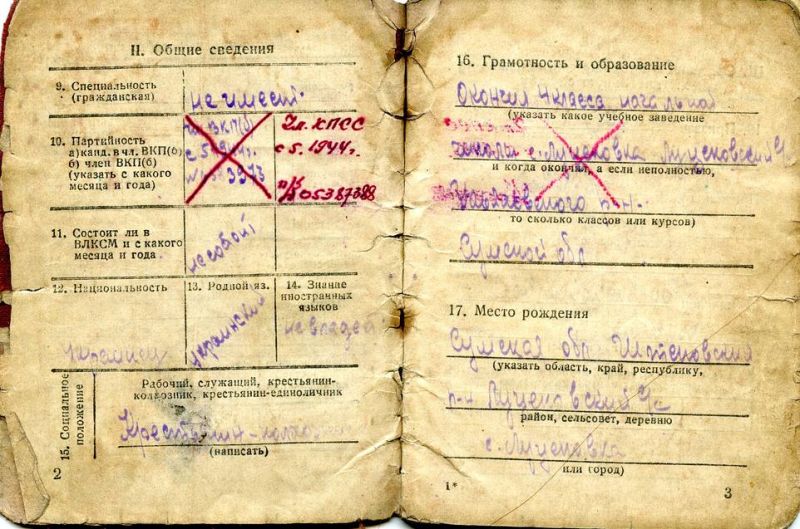 II. Общие сведения
9. Специальность
(гражданская)
не имеет
10. Партийность
а) канд. в чл. ВКП(б)
б) член ВКП(б)
(указать с какого
месяца и года)
ВКП(б)
с 5.1944г.
3973
Чл. КПСС
с 5. 1944г.
п/б
№ 05387388
11. Состоит ли в
ВЛКСМ и с какого
месяца и года
не состоит
12. Национальность
украинец
13. Родной яз.
украинский
14. Знание
иностранных
языков
не владеет
15. Социальное
положение
Рабочий, служащий, крестьянин-
колхозник, крестьянин-единоличник
Крестьянин-колхозник
(написать)
2
16. Грамотность и образование
Окончил 4 класса начальной
(указать какое учебное заведение
школы с. Луценковка Луценковский
и когда окончил, а если неполностью,
р-н.
то сколько классов или курсов)
Сумской обл
17. Место рождения
Сумская обл
(указать область, край, республику,
р-н Луценковский
район, сельсовет, деревню
с. Луценковка
или город)
1*
3